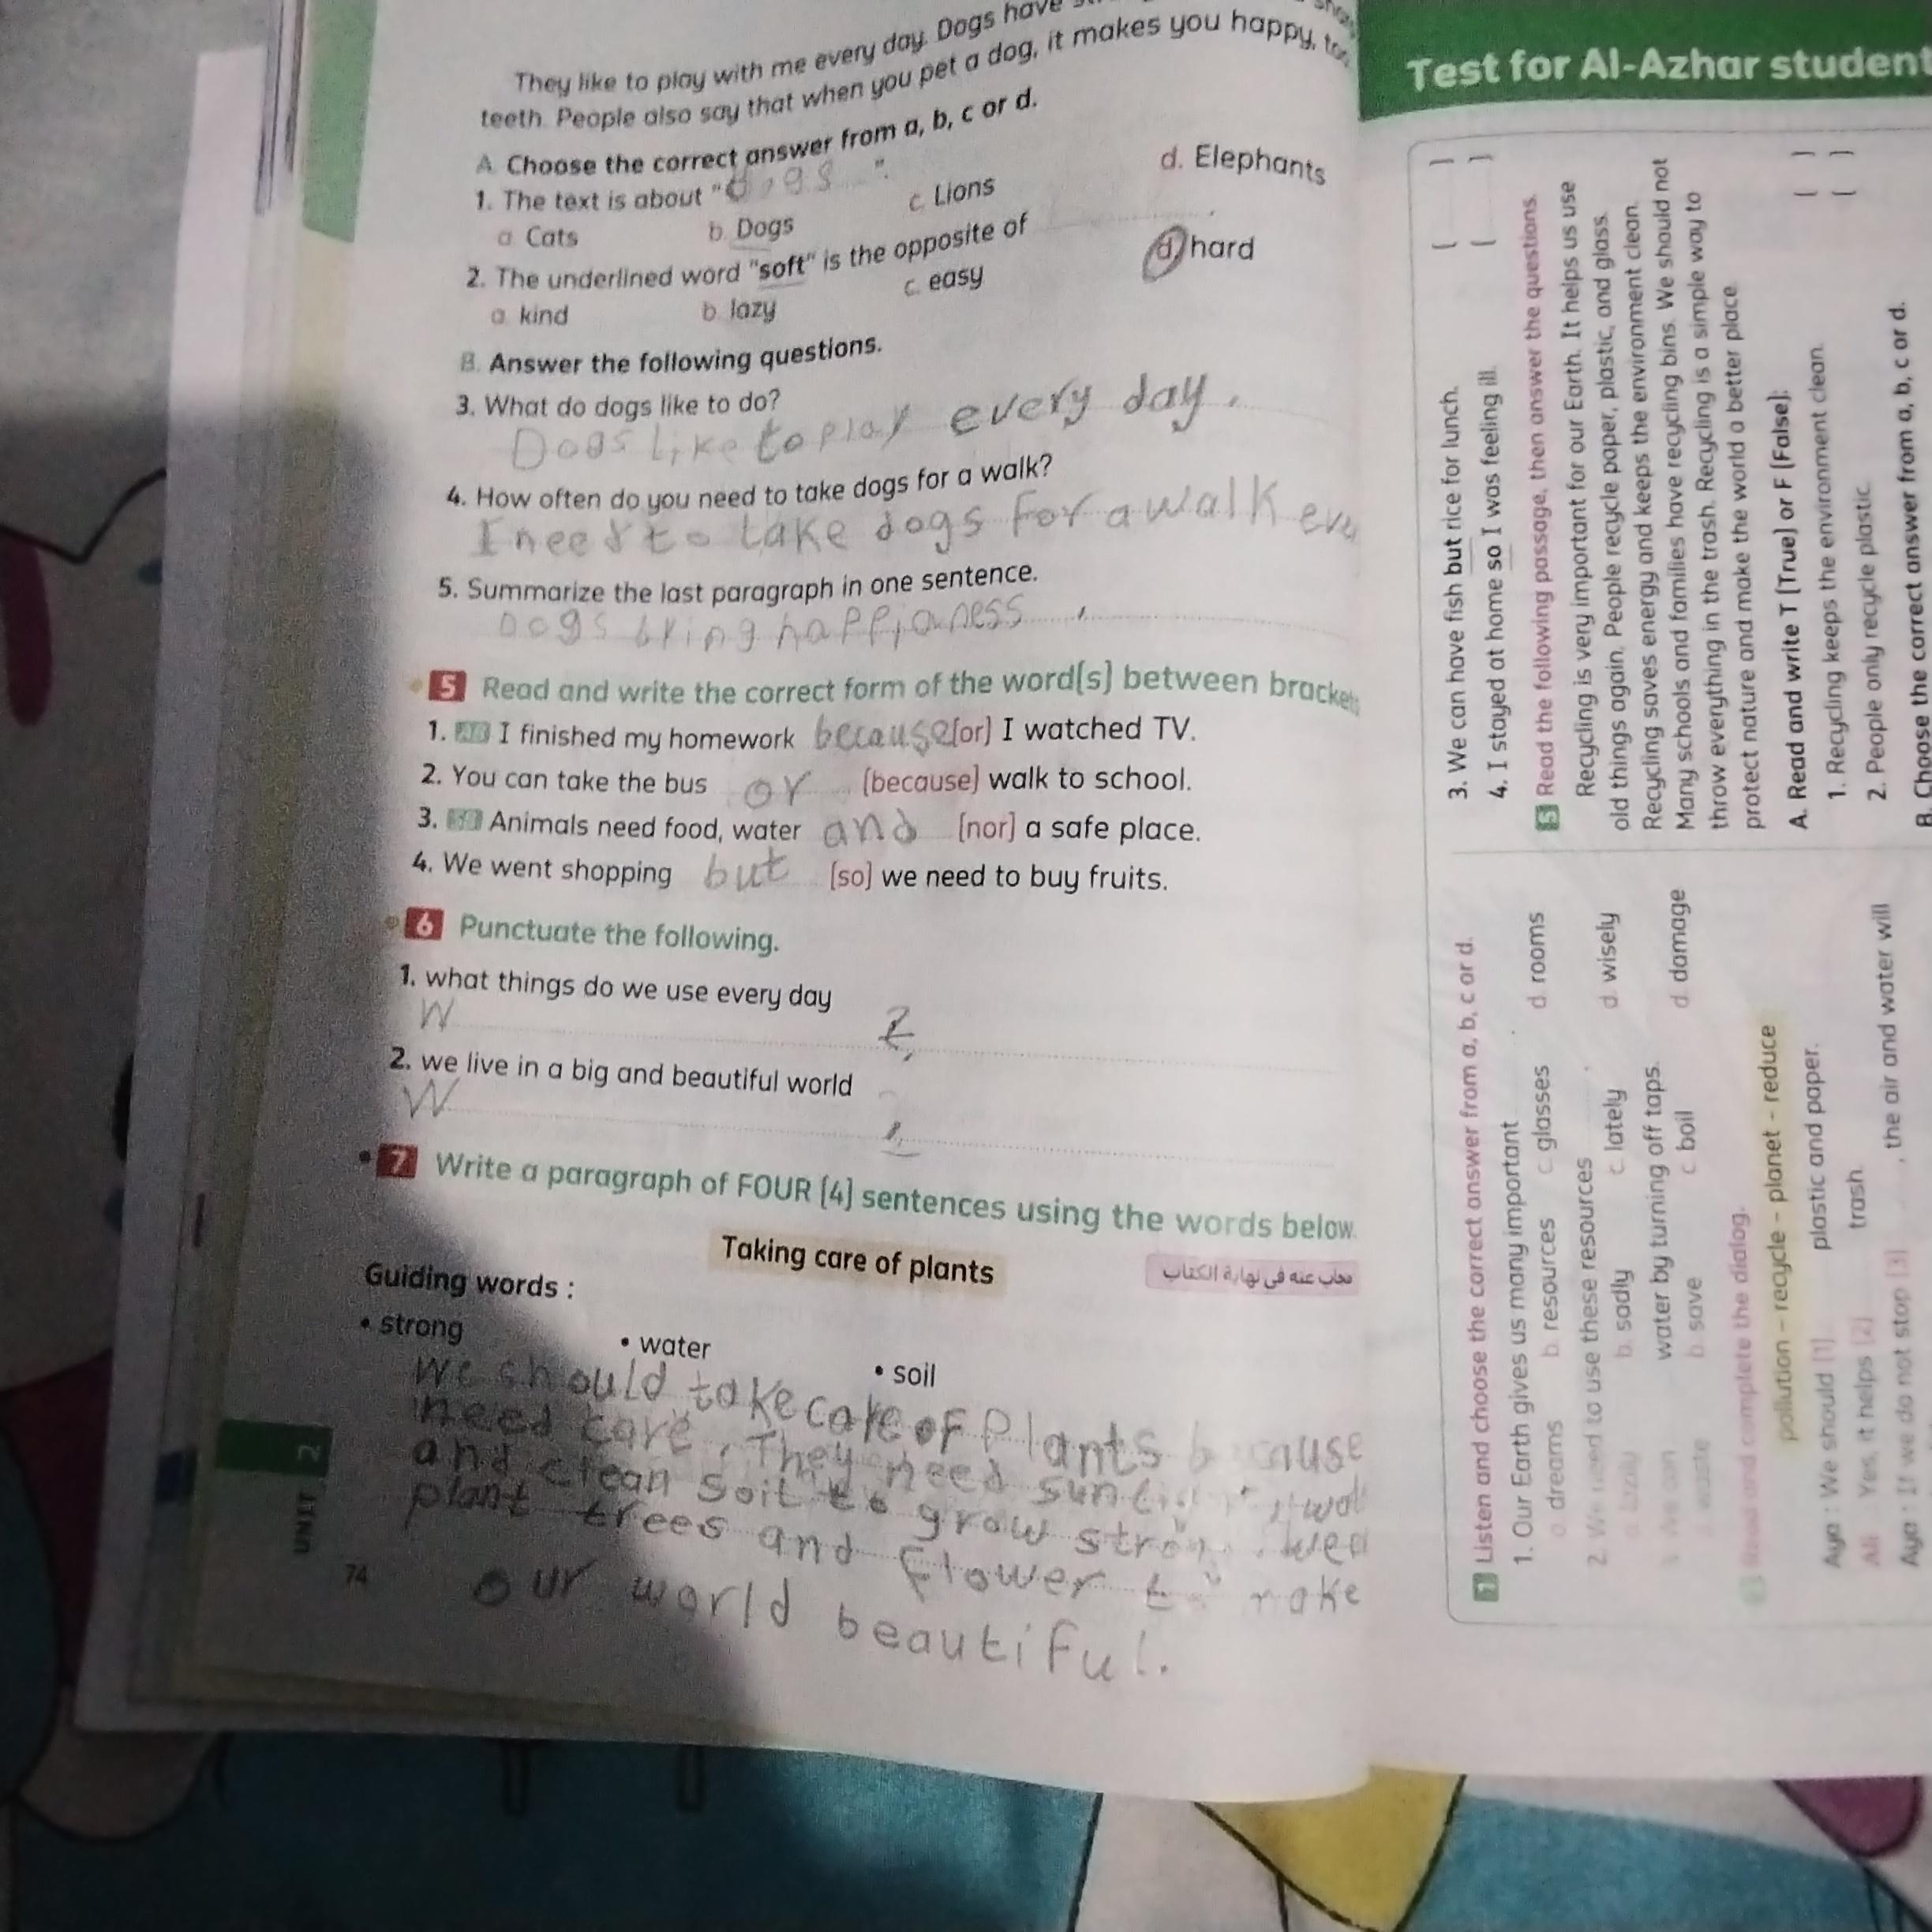 They like to play with me every day. Dogs have
teeth. People also say that when you pet a dog, it makes you happy,
A. Choose the correct answer from a, b, c or d.
1. The text is about "Dogs".
a. Cats b. Dogs c. Lions d. Elephants
2. The underlined word "soft" is the opposite of .
a. kind b. lazy c. easy d. hard
B. Answer the following questions.
3. What do dogs like to do?
Dogs Like to play every day.
4. How often do you need to take dogs for a walk?
I need to take dogs for a walk
5. Summarize the last paragraph in one sentence.
Dogs bring
5 Read and write the correct form of the word(s) between
1. I finished my homework because (or) I watched TV.
2. You can take the bus or (because) walk to school.
3. Animals need food, water and (nor) a safe place.
4. We went shopping but (so) we need to buy fruits.
6 Punctuate the following.
1. what things do we use every day
W ?
2. we live in a big and beautiful world
W .
7 Write a paragraph of FOUR (4) sentences using the words below.
Taking care of plants
مجاب عنه في نهاية الكتاب
Guiding words :
• strong • water • soil
We should take care of plants because
need care. They need
and clean soil to grow
plant trees and flower to make
our world beautiful.
UNIT 2
74
Test for Al-Azhar student
1 Listen and choose the correct answer from a, b, c or d.
1. Our Earth gives us many important .
a. dreams b. resources c. glasses d. rooms
2. We need to use these resources .
b. sadly c. lately d. wisely
3. We can water by turning off taps.
a. waste b. save c. boil d. damage
Read and complete the dialog.
pollution - recycle - planet - reduce
Aya : We should (1) plastic and paper.
Ali : Yes, it helps (2) trash.
Aya : If we do not stop (3) , the air and water will
3. We can have fish but rice for lunch. ( )
4. I stayed at home so I was feeling ill. ( )
5 Read the following passage, then answer the questions.
Recycling is very important for our Earth. It helps us use
old things again. People recycle paper, plastic, and glass.
Recycling saves energy and keeps the environment clean.
Many schools and families have recycling bins. We should not
throw everything in the trash. Recycling is a simple way to
protect nature and make the world a better place.
A. Read and write T (True) or F (False):
1. Recycling keeps the environment clean. ( )
2. People only recycle plastic. ( )
B. Choose the correct answer from a, b, c or d.